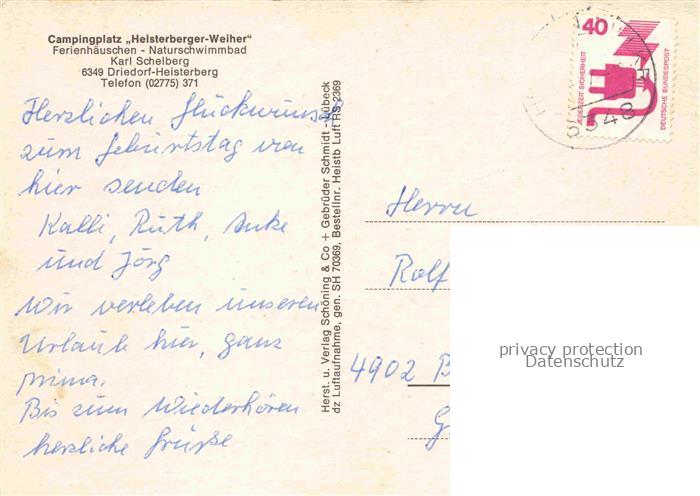 Campingplatz „Heisterberger-Weiher“
Ferienhäuschen - Naturschwimmbad
Karl Schelberg
6349 Driedorf-Heisterberg
Telefon (02775) 371
Herzlichen Glückwunsch
zum Geburtstag von
hier senden
Kalli, Ruth, Anke
und Jörg
Wir verleben unseren
Urlaub hier, ganz
prima.
Bis zum Wiederhören
herzliche Grüße
Herst. u. Verlag Schöning & Co + Gebrüder Schmidt - Lübeck
dz Luftaufnahme, gen. SH 70369, Bestellnr. Heistb Luft RS 2369
40
JEDERZEIT SICHERHEIT
DEUTSCHE BUNDESPOST
6348
Herrn
Rolf
4902 B
G
privacy protection
Datenschutz